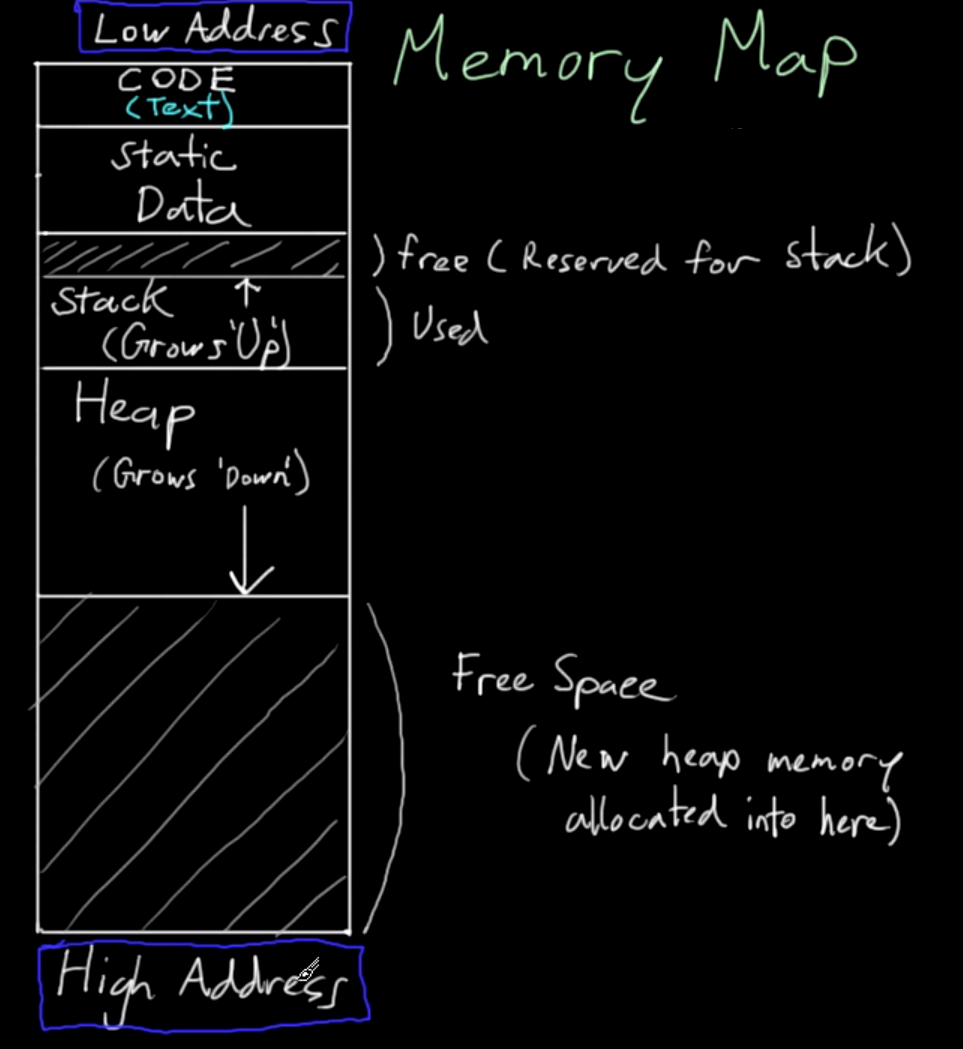 Low Address
Memory Map
CODE
(Text)
Static
Data
) free (Reserved for stack)
Stack
(Grows 'Up')
) Used
Heap
(Grows 'Down')
Free Space
(New heap memory
allocated into here)
High Address